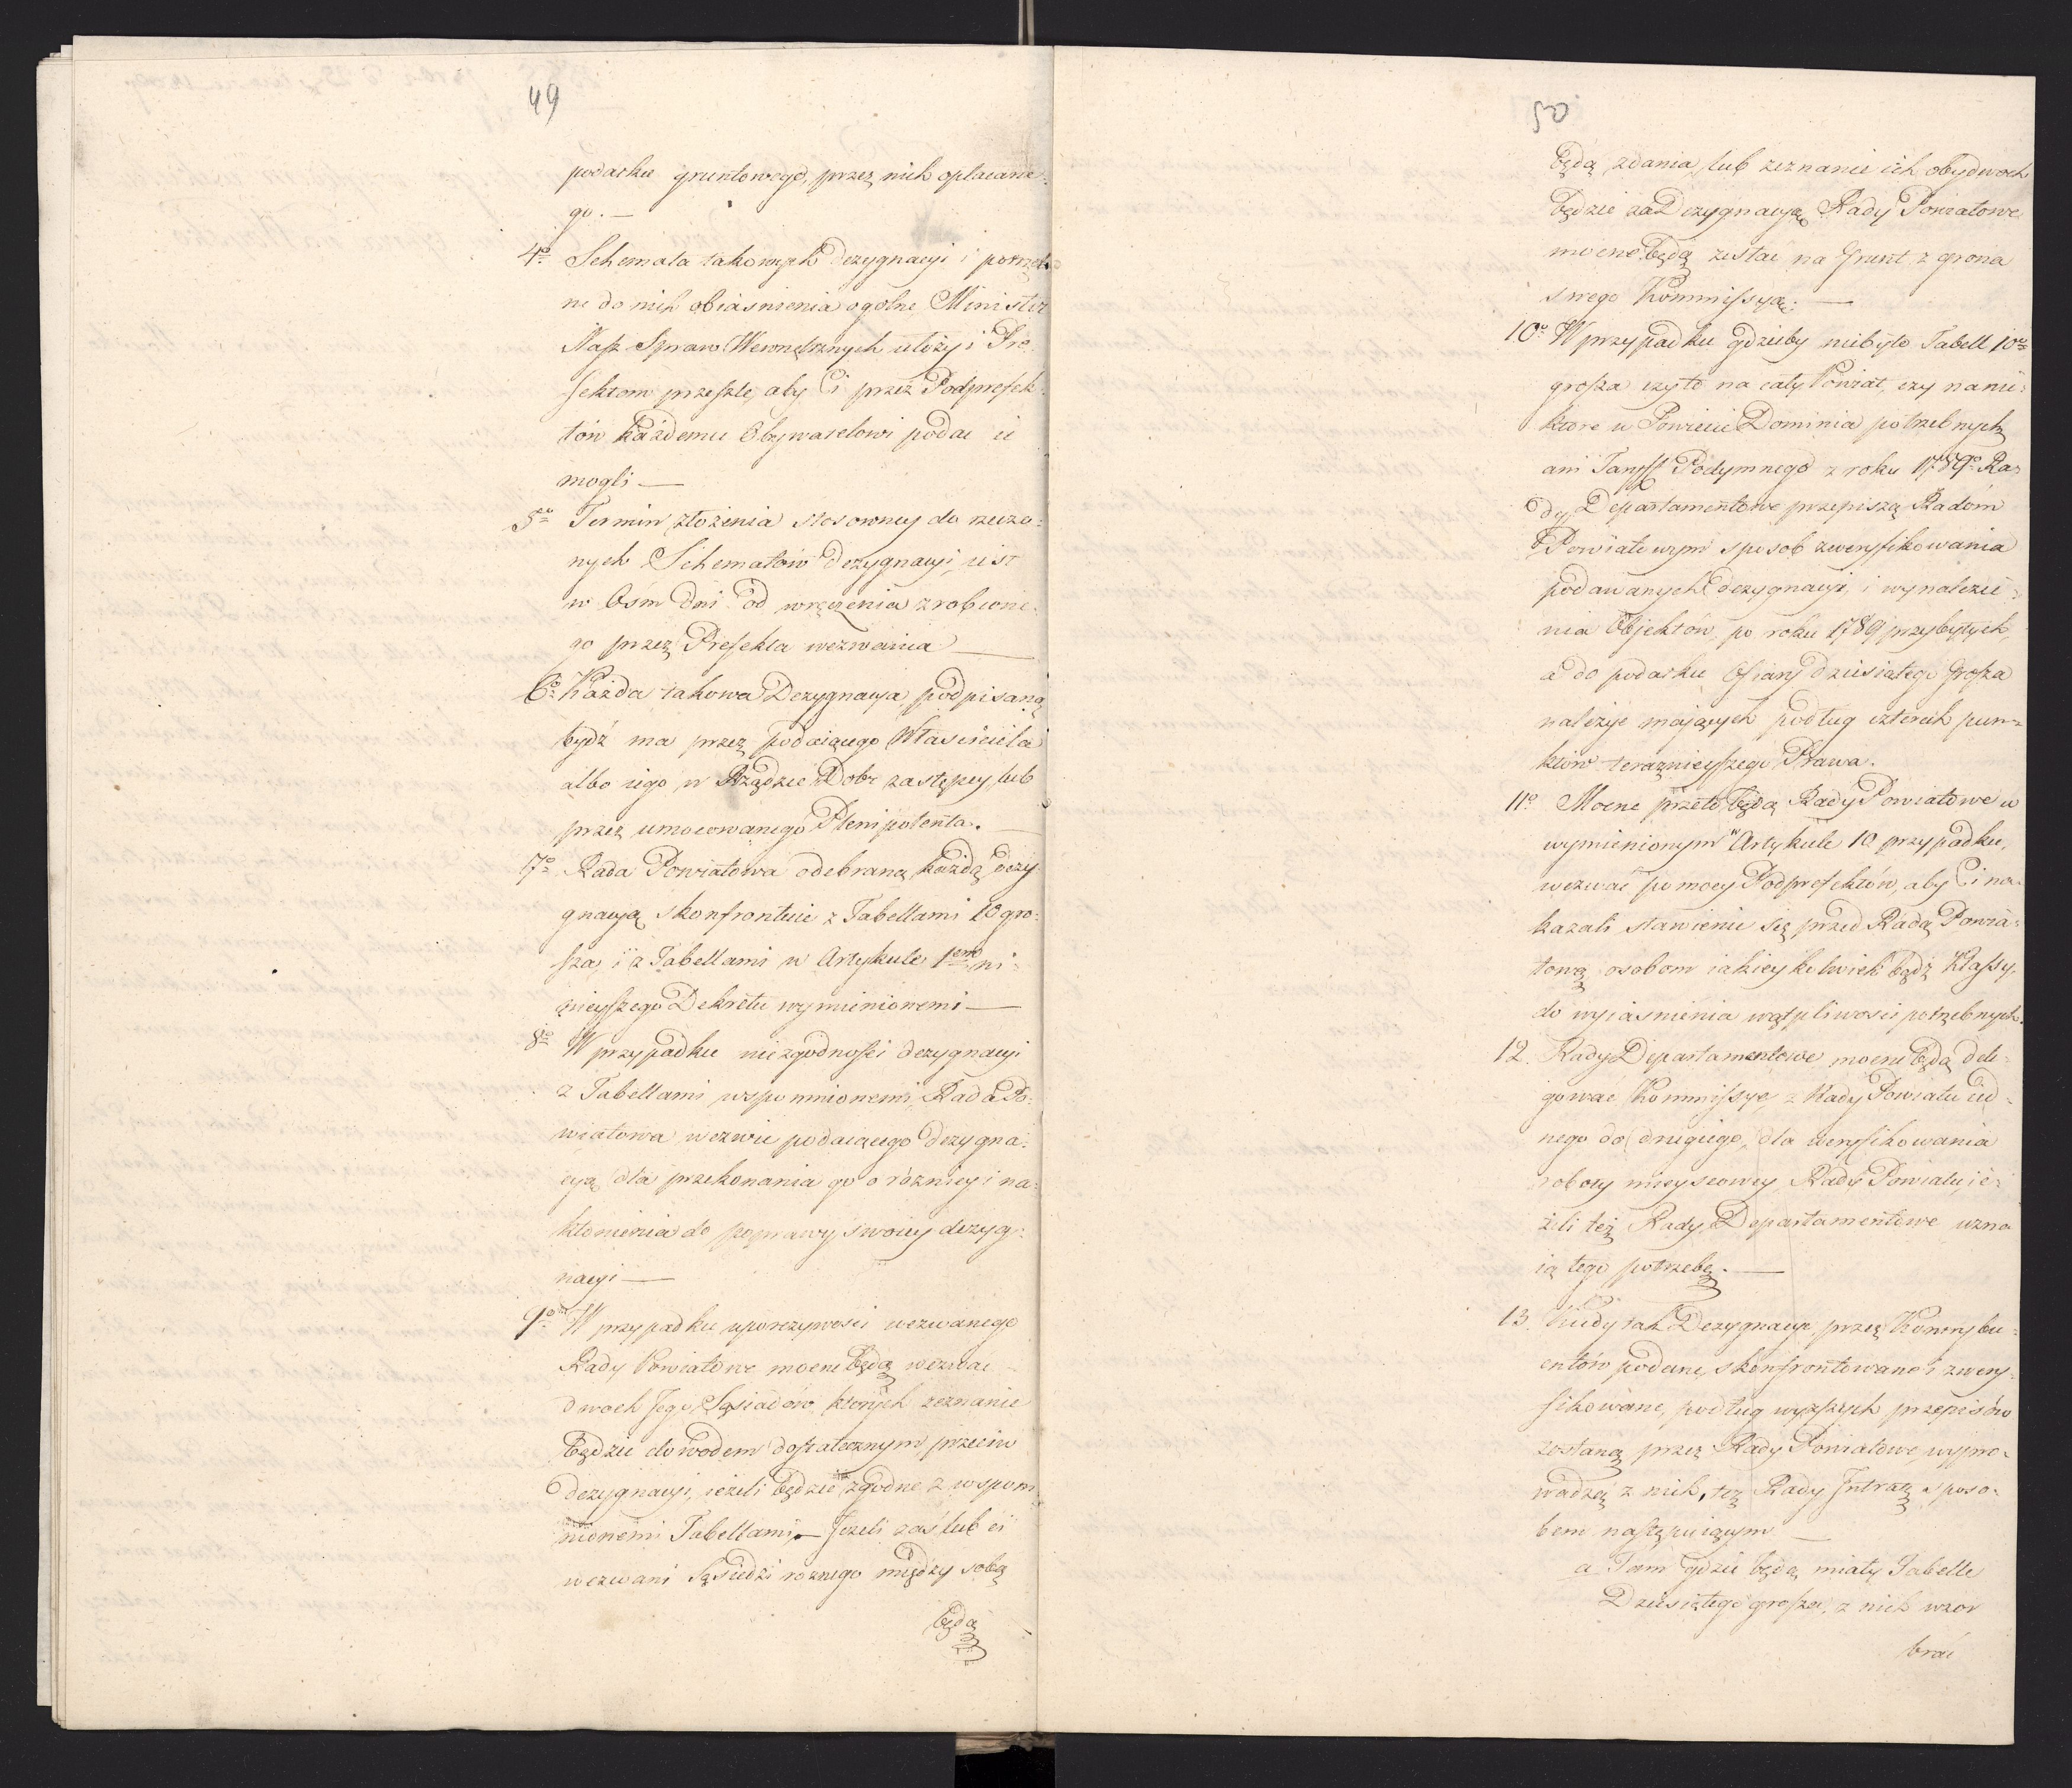 49
podatku gruntowego, przez nich opłacane-
go. —
4o Schemata takowych dezygnacyi i potrzeb-
ne do nich obiaśnienia ogolne, Minister
Nasz Spraw Wewnętrznych ułoży i Pre-
fektom przeszle, aby Ci przez Podprefek-
tów każdemu Obywatelowi podać ie
mogli —
5o Termin złożenia stosowney do rzeczo-
nych Schematów dezygnacyi, iest
w Ośm dni od wręczenia zrobione-
go przez Prefekta wezwania —
6o Każda takowa Dezygnacya, podpisaną
bydź ma przez podaiącego Właściciela
albo iego w Rządzie Dobr zastępcy, lub
przez umocowanego Plenipotenta. —
7o Rada Powiatowa odebraną każdą dezy-
gnacyą skonfrontuie z Tabellami 10 gro-
sza, i z Tabellami w Artykule 1em ni-
nieyszego Dekretu wymienionemi —
8o W przypadku niezgodności dezygnacyi
z Tabellami wspomnionemi, Rada Po-
wiatowa wezwie podaiącego dezygna-
cyą dla przekonania go o róznicy i na-
kłonienia do poprawy swoiey dezyg-
nacyi —
9o W przypadku uporczywości wezwanego
Rady Powiatowe mocne będą wezwać
dwoch Jego Sąsiadów, których zeznanie
będzie dowodem dostatecznym, przeciw
dezygnacyi, ieżeli będzie zgodne z wspom-
nionemi Tabellami — Jeżeli zaś lub ci
wezwani Sąsiedzi roznego między sobą
będą
50
będą zdania, lub zeznanie ich obydwoch
będzie za Dezygnacyą, Rady Powiatowe
mocne będą zesłać na Grunt z grona
swego Kommissyą. —
10o W przypadku gdzieby niebyło Tabell 10go
grosza czyto na cały Powiat, czy na nie-
ktore w Powiecie Dominia potrzebnych
ani Taryff Podymnego z roku 1789o Ra-
dy Departamentowe przepiszą Radom
Powiatowym sposob zweryfikowania
podawanych dezygnacyi, i wynalezie-
nia Objektów, po roku 1789 przybyłych,
a do podatku Ofiary dziesiątego grosza
należyć maiących podług czterech pun-
któw teraznieyszego Prawa.
11o Mocne przeto będą Rady Powiatowe w
wymienionym w Artykule 10 przypadku,
wezwać pomocy Podprefektów, aby Ci na-
kazali stawienie się przed Radą Powia-
tową osobom iakieykolwiek bądź Klassy,
do wyiaśnienia wątpliwości potrzebnych.
12. Rady Departamentowe mocne będą dele-
gować Kommissye, z Rady Powiatu ied-
nego do drugiego, dla weryfikowania
roboty mieyscowey Rady Powiatu, ie-
żeli też Rady Departamentowe uzna-
ią tego potrzebę. —
13. Kiedy tak Dezygnacye przez Kontrybu-
entów podane, skonfrontowane i zwery-
fikowane, podług wyższych przepisów
zostaną przez Rady Powiatowe, wypro-
wadzą z nich, też Rady Jntratę sposo-
bem następuiącym —
a Tam gdzie będą miały Tabelle
Dziesiątego grosza, z nich wzor
brać